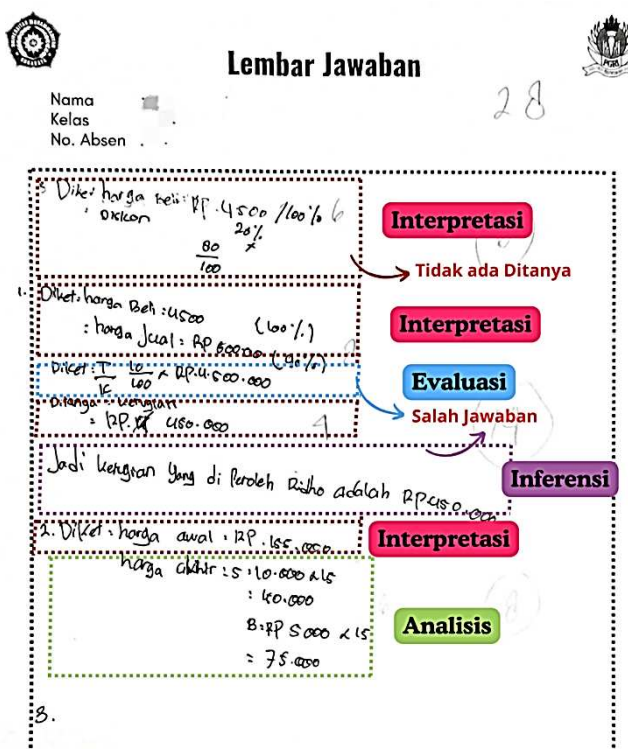 Lembar Jawaban
Nama
Kelas .
No. Absen . .
28
3. Diket harga beli: RP. 4500 /100% 6
: Diskon 20%
80 x
100
Interpretasi
Tidak ada Ditanya
1. Diket: harga Beli : 4500 (100%)
: harga Jual = RP
Interpretasi
Diket: 10 x RP.4.500.000
100
Evaluasi
Ditanya : kerugian
= RP. 450.000 4
Salah Jawaban
Jadi kerugian yang di Peroleh Ridho adalah RP450.000
Inferensi
2. Diket : harga awal : RP. 155.000
Interpretasi
harga akhir : S : 10.000 x 15
: 150.000
B : RP 5000 x 15
= 75.000
Analisis
3.